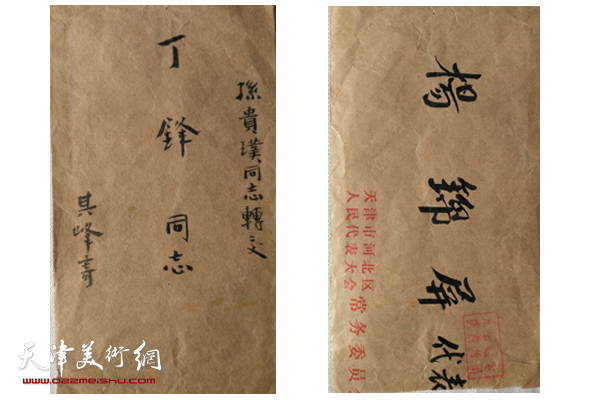 孫貴璞同志轉交
丁鋒同志
其峰寄
天津美術網
www.022meishu.com
楊錦屏代表
天津市河北区
人民代表大会常务委员